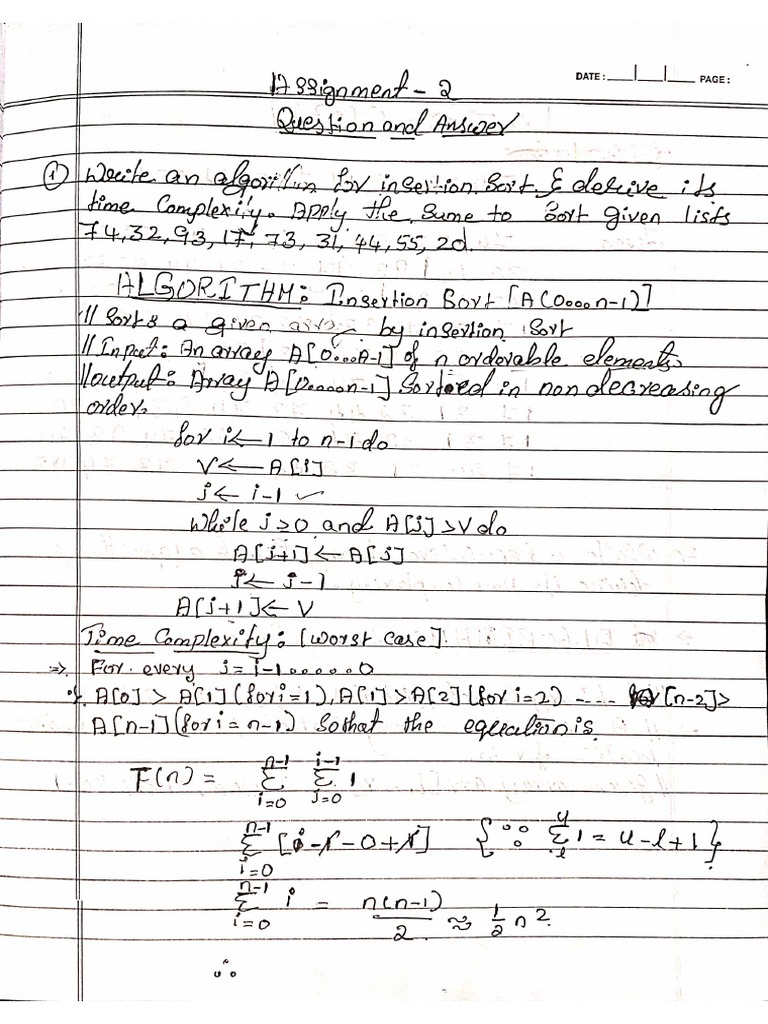 DATE: ___|___|___ PAGE:
Assignment - 2
Question and Answer
① Write an algorithm for insertion sort & derive its
time Complexity. Apply the same to sort given lists
74, 32, 93, 17, 73, 31, 44, 55, 20.
ALGORITHM: Insertion Sort [A(0...n-1)]
// Sorts a given array by insertion sort
// Input: An array A[0...A-1] of n orderable elements.
// output: Array A[0....n-1] Sorted in non decreasing
order.
for i ← 1 to n-1 do
V ← A[i]
j ← i-1 ✓
While j ≥ 0 and A[j] > V do
A[j+1] ← A[j]
j ← j-1
A[j+1] ← V
Time Complexity: [Worst case]
⇒ For every j = i-1......0
A[0] > A[1] (for i=1), A[1] > A[2] (for i=2) ---- [n-2] >
A[n-1] (for i = n-1) So that the equation is.
T(n) = n-1 Σ i=0 i-1 Σ j=0 1
n-1 Σ i=0 [i - 1 - 0 + 1] {∵ u Σ l 1 = u - l + 1}
n-1 Σ i=0 i = n(n-1)/2 ≈ 1/2 n²
∴